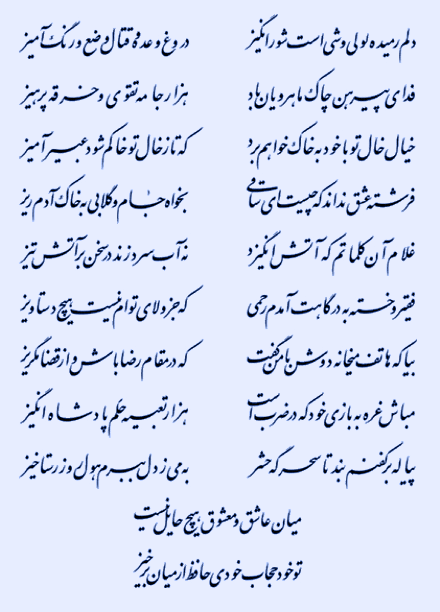 دلم رمیده لولی‌وشی است شورانگیز دروغ وعده و قتال وضع و رنگ آمیز
فدای پیرهن چاک ماهرویان باد هزار جامه تقوی و خرقه پرهیز
خیال خال تو با خود به خاک خواهم برد که تا ز خال تو خاکم شود عبیرآمیز
فرشته عشق نداند که چیست ای ساقی بخواه جام و گلابی به خاک آدم ریز
غلام آن کلماتم که آتش انگیزد نه آب سرد زند در سخن بر آتش تیز
فقیر و خسته به درگاهت آمدم رحمی که جز ولای توام نیست هیچ دستاویز
بیا که هاتف میخانه دوش با من گفت که در مقام رضا باش و از قضا مگریز
مباش غره به بازی خود که در ضرب است هزار تعبیه حکم پادشاه انگیز
پیاله بر کفنم بند تا سحرگه حشر به می ز دل ببرم هول روز رستاخیز
میان عاشق و معشوق هیچ حایل نیست
تو خود حجاب خودی حافظ از میان برخیز